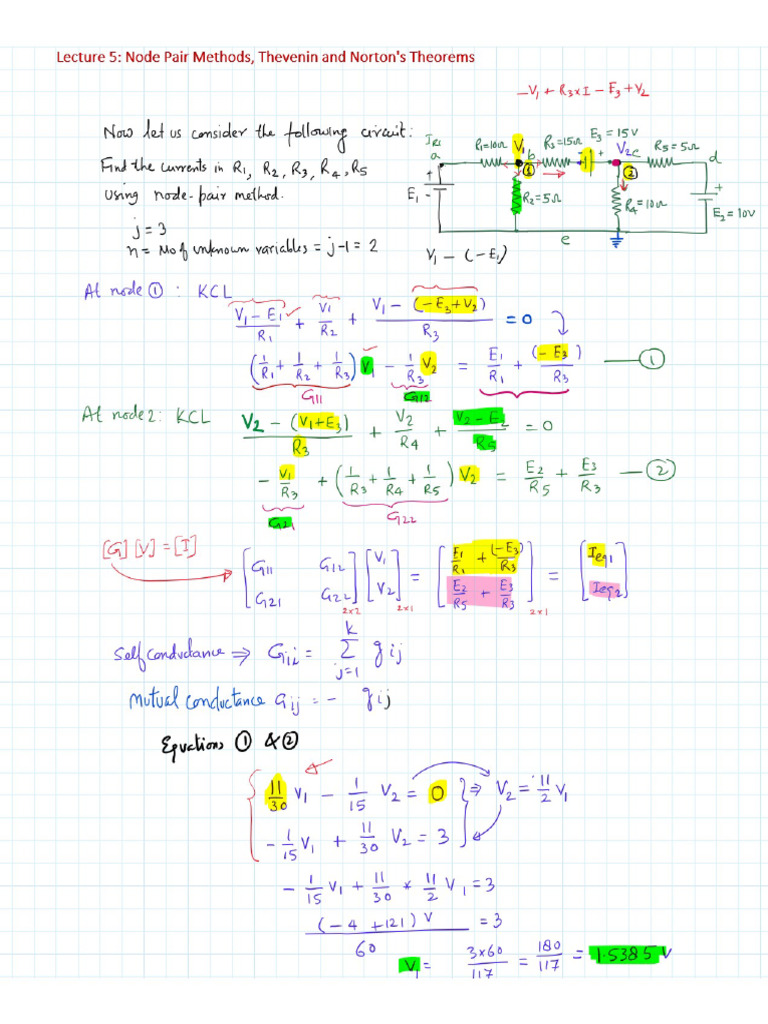 Lecture 5: Node Pair Methods, Thevenin and Norton's Theorems
-V₁ + R₃×I - E₃ + V₂
Now let us consider the following circuit:
Find the currents in R₁, R₂, R₃, R₄, R₅
using node-pair method.
j = 3
n = No of unknown variables = j-1 = 2
I_R1 R₁=10Ω V₁ R₃=15Ω E₃ = 15V V₂ R₅=5Ω
a b c d
① ②
E₁ + - R₂=5Ω R₄=10Ω + E₂=10V
e
V₁ - (-E₁)
At node ① : KCL
(V₁ - E₁)/R₁ + V₁/R₂ + (V₁ - (-E₃+V₂))/R₃ = 0
(1/R₁ + 1/R₂ + 1/R₃) V₁ - 1/R₃ V₂ = E₁/R₁ + (-E₃)/R₃ — ①
G₁₁ G₁₂
At node 2: KCL
(V₂ - (V₁+E₃))/R₃ + V₂/R₄ + (V₂ - E₂)/R₅ = 0
- V₁/R₃ + (1/R₃ + 1/R₄ + 1/R₅) V₂ = E₂/R₅ + E₃/R₃ — ②
G₂₁ G₂₂
[G] [V] = [I]
[G₁₁ G₁₂] [V₁] = [E₁/R₁ + (-E₃)/R₃] = [Ieq₁]
[G₂₁ G₂₂]2×2 [V₂]2×1 = [E₂/R₅ + E₃/R₃]2×1 = [Ieq₂]
Self conductance ⇒ Gᵢᵢ = Σ (j=1 to k) gᵢⱼ
Mutual conductance Gᵢⱼ = - gᵢⱼ
Equations ① & ②
11/30 V₁ - 1/15 V₂ = 0 } ⇒ V₂ = 11/2 V₁
- 1/15 V₁ + 11/30 V₂ = 3
- 1/15 V₁ + 11/30 * 11/2 V₁ = 3
(-4 + 121) V / 60 = 3
V₁ = 3×60/117 = 180/117 = 1.5385 V